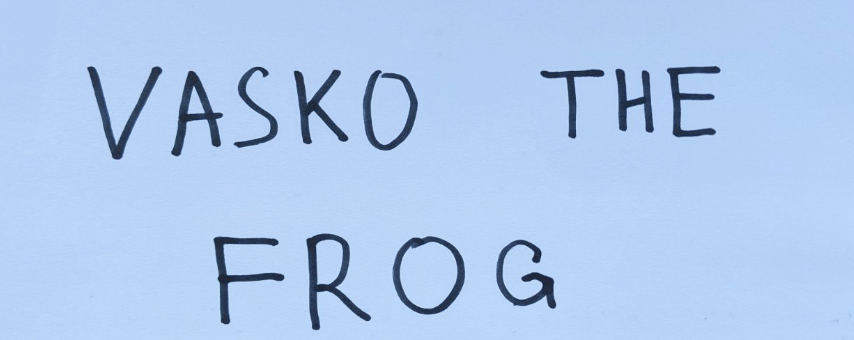 VASKO THE
FROG